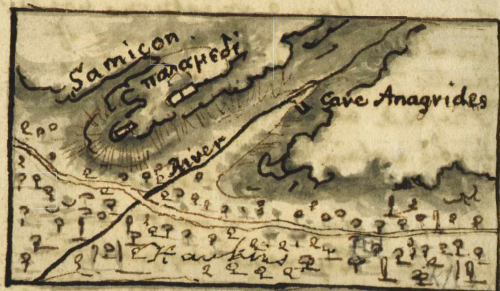 Samicon
παλαμεδι
Cave Anagrides
River
Hawkins